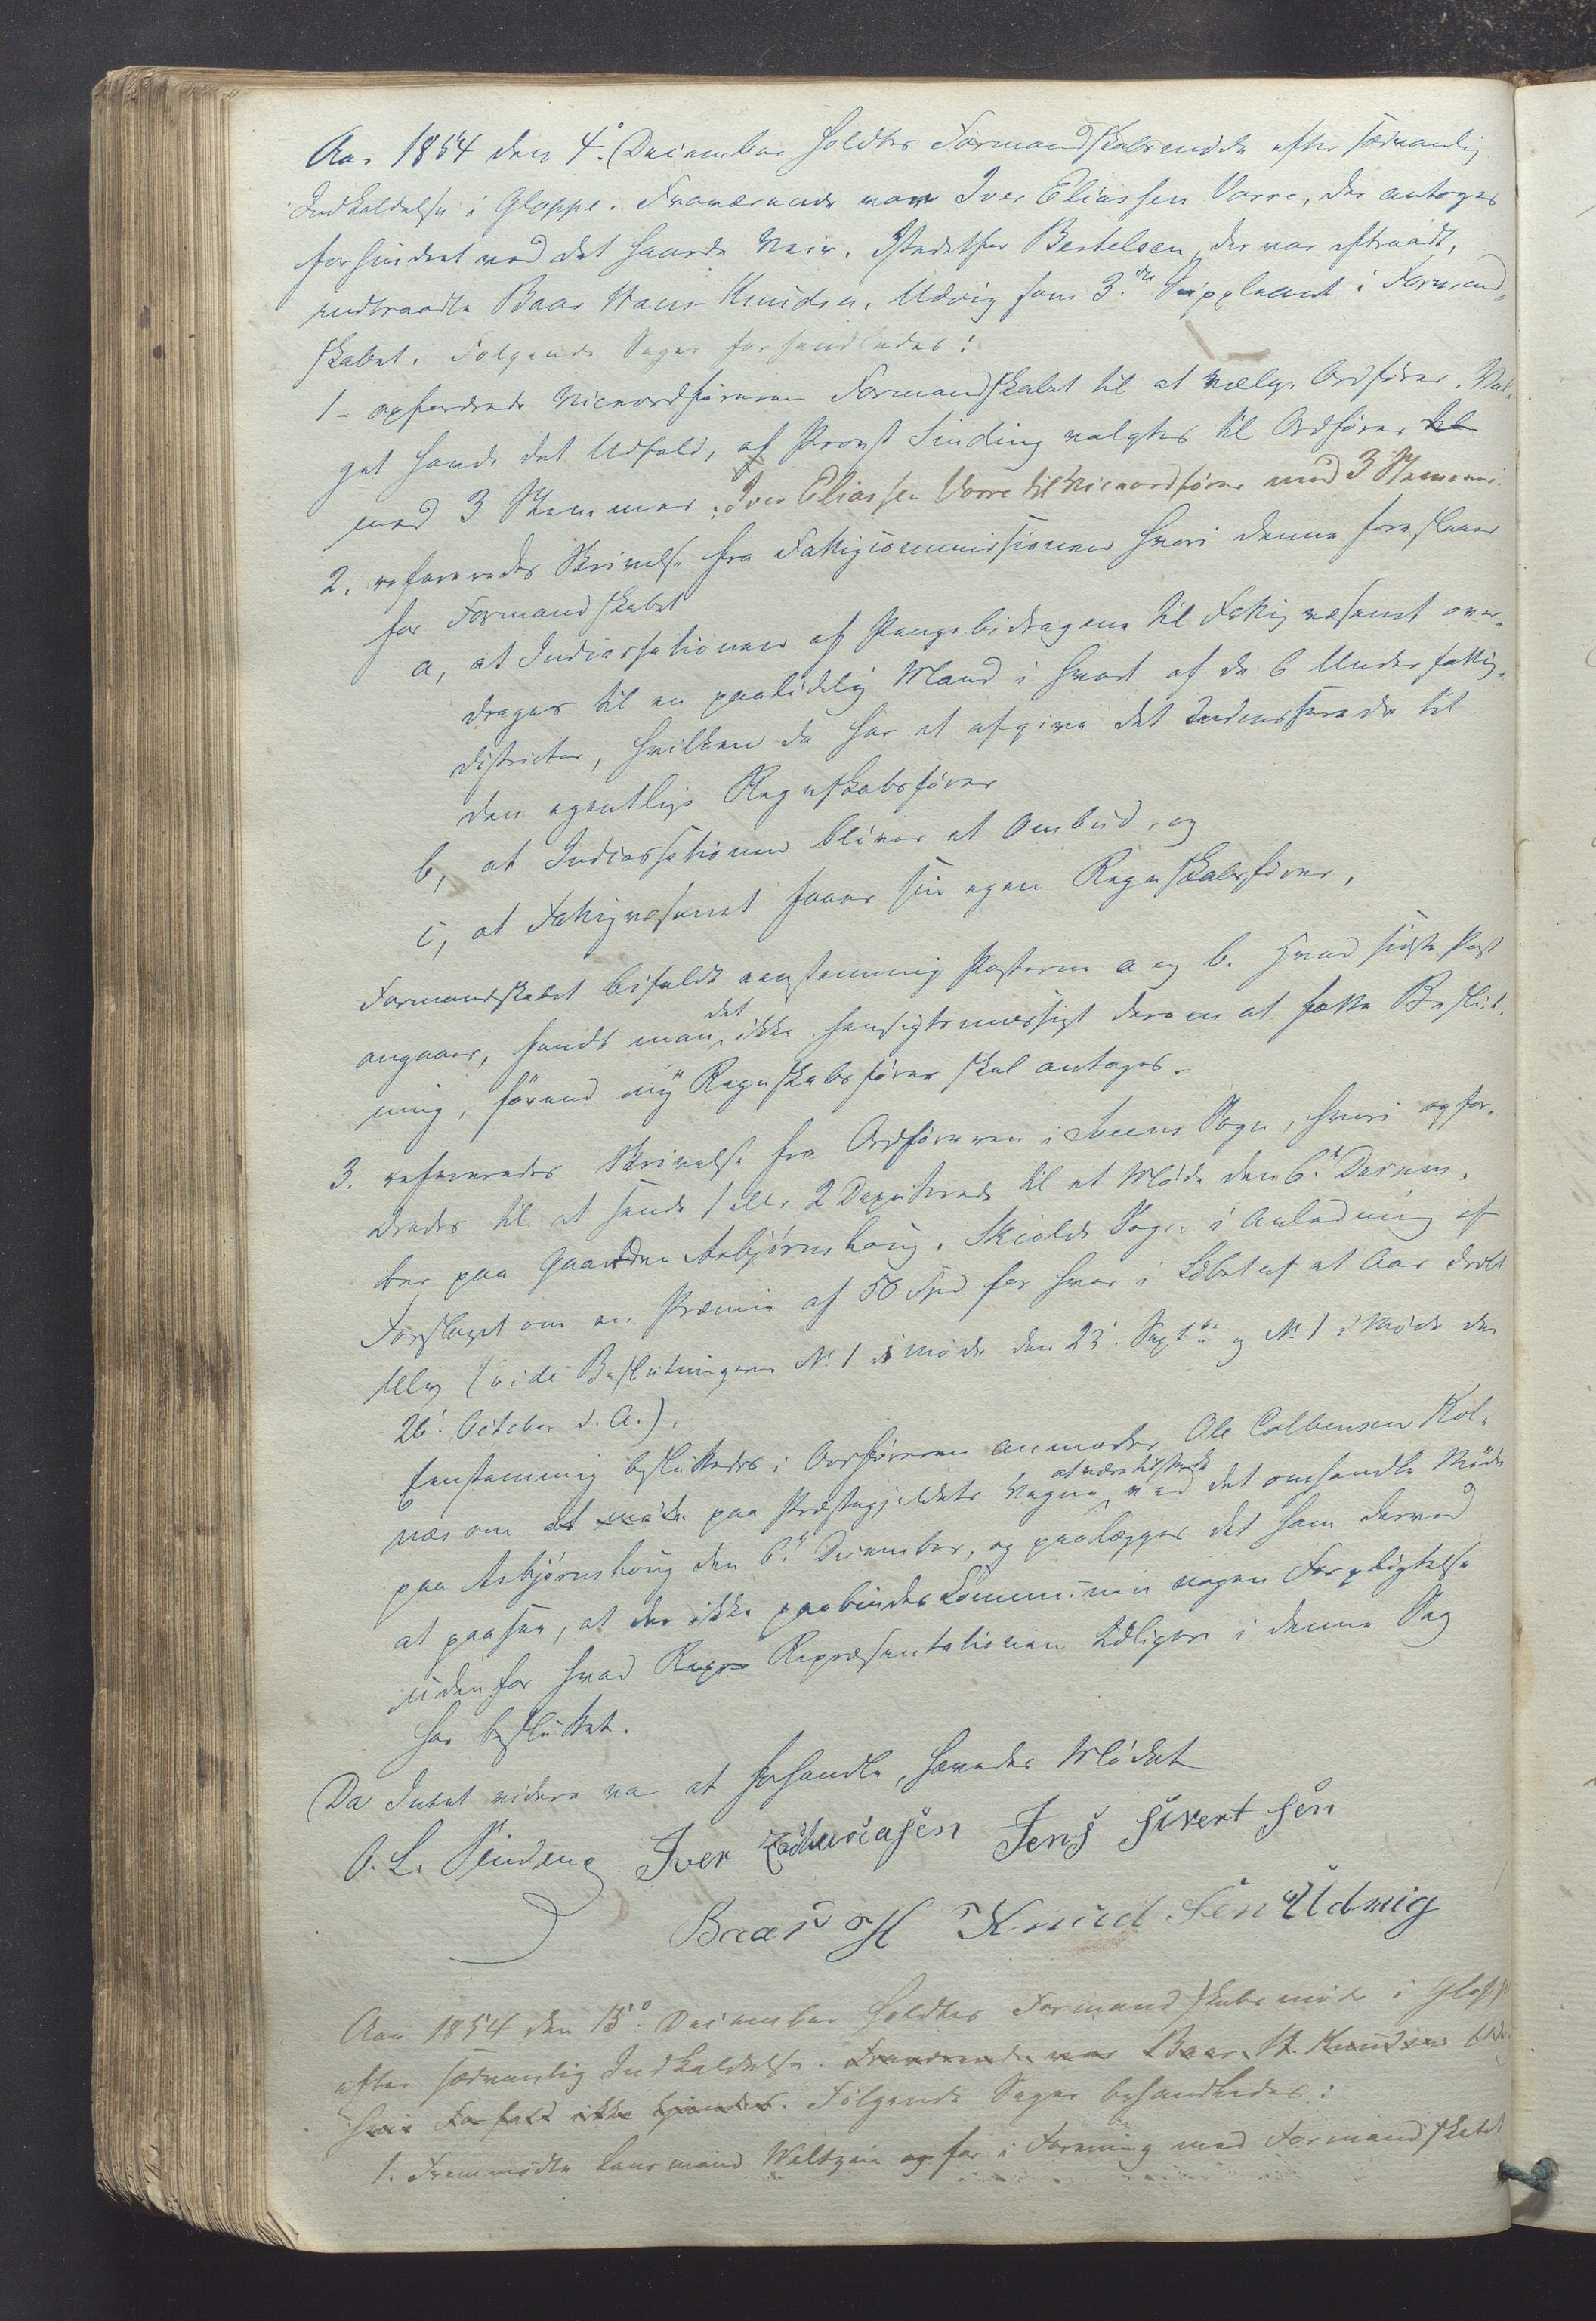 Aar 1854 den 4. December holdtes Formandskabsmøde efter sædvanlig
Indkaldelse i Gloppe. Fraværende var Iver Eliassen Vorre, der antoges
forhindret ved det haarde Veir. Istedetfor Bertelsen, der var aftraadt,
indtraadte Baar Hans Knudsen Udvig som 3.die Suppleant i Formand-
skabet. Følgende Sager forhandledes:
1 - opfordrede Viceordføreren Formandskabet til at vælge Ordfører. Val-
get havde det Udfald, at Provst Sinding valgtes til Ordfører
med 3 Stemmer. Iver Eliassen Vorre til Viceordfører med 3 Stemmer.
2. refereredes Skrivelse fra Fattigcommissionen hvori denne foreslaaer
for Formandskabet
a, at Indcassationen af Pengebidragene til Fattigvæsenet over-
drages til en paalidelig Mand i hvert af de 6 Underfattig-
districter, hvilken da har at afgive det Indcasserede til
den egentlige Regnskabsfører
b, at Indcassationen bliver et Ombud, og
c, at Fattigvæsenet faaer sin egen Regnskabsfører,
Formandskabet bifaldt eenstemmig Posterne a og b. Hvad sidste Post
angaaer, fandt man det ikke hensigtsmæssigt derom at fatte Beslut-
ning, førend ny Regnskabsfører skal antages.
3. refereredes Skrivelse fra Ordføreren i Sveens Sogn, hvori opfor-
dredes til at sende 1 eller 2 Deputerede til et Møde den 6. Decem-
ber paa Gaarden Asbjørnshoug i Skiolds Sogn i Anledning af
Forslaget om en Præmie af 50 Spd for hver i Løbet af et Aar dræbt
Ulv (vide Beslutningerne No 1 i Møde den 23. Septbr og No 1 i Møde den
26. October d. A.).
Eenstemmig besluttedes: Ordføreren anmoder Ole Colbensen Kol-
næs om at møde paa Præstegjeldets Vegne at være tilstede ved det omhandlede Møde
paa Asbjørnshoug den 6. December, og paalægges det ham derved
at paasee, at der ikke paabindes Communen nogen Forpligtelse
udenfor hvad Repr Repræsentationen tidligere i denne Sag
har besluttet.
Da Intet videre var at forhandle, hævedes Mødet
O. L. Sinding Iver Zachariasen Jens Sivertsen
Baar H Knudsen Udvig
Aar 1854 den 13. December holdtes Formandskabsmøde i Gloppe
efter sædvanlig Indkaldelse. Fraværende var Baar H. Knudsen
hvis Forfald ikke kjendes. Følgende Sager behandledes:
1. Fremmødte Lensmand Weltzin og for i Forening med Formandskabet